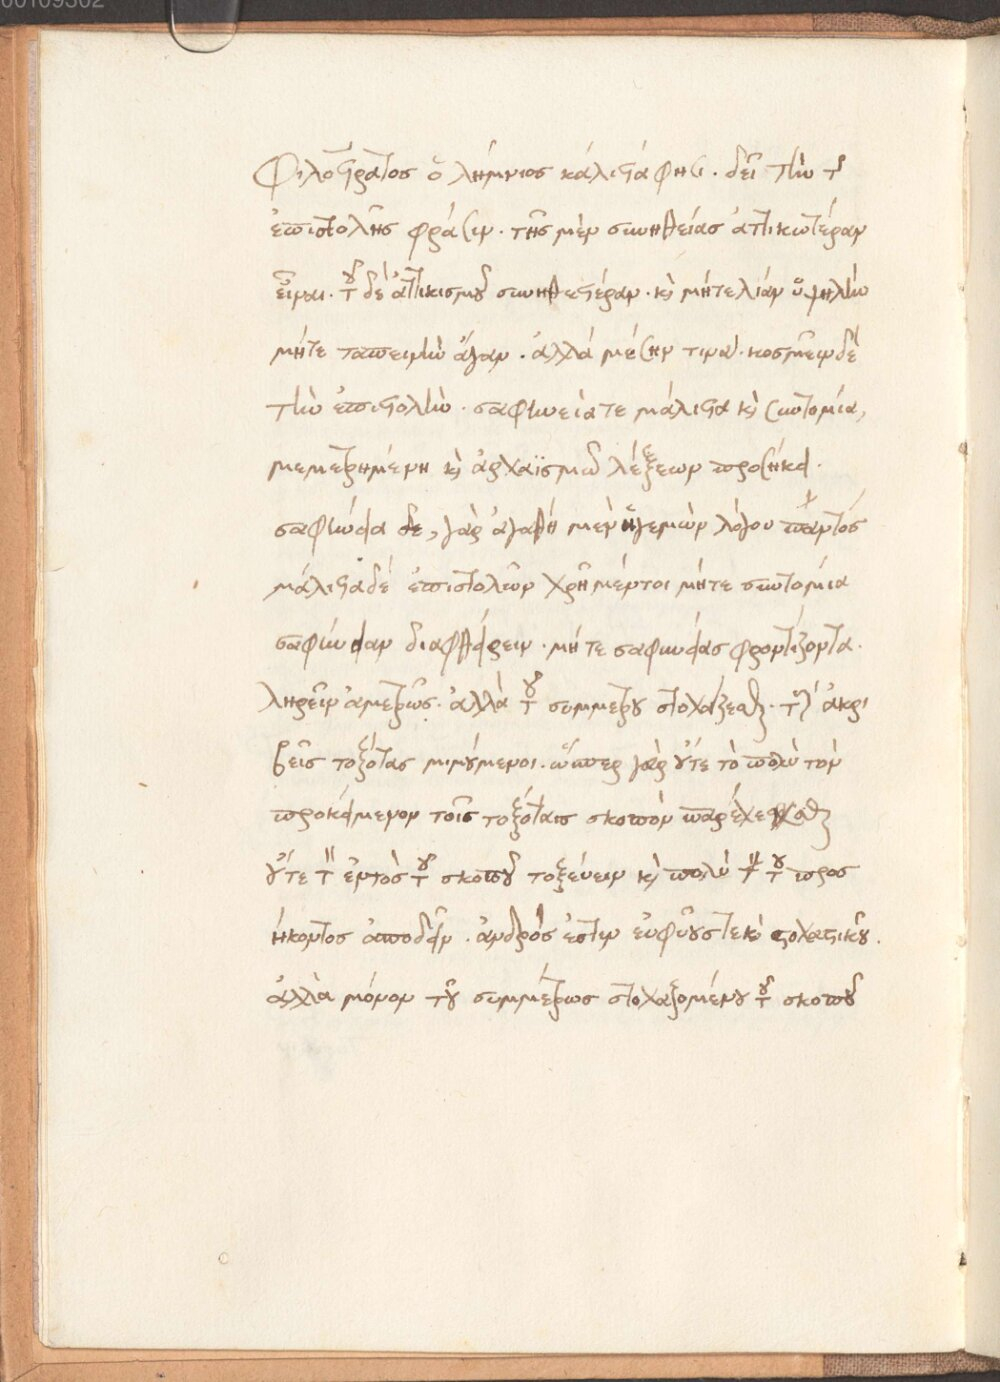 Φιλόστρατος ὁ λήμνιος κάλιστά φησι. δεῖ τὴν τῆς
ἐπιστολῆς φράσιν. τῆς μὲν συνηθείας ἀττικωτέραν
εἶναι. τοῦ δὲ ἀττικισμοῦ συνηθεστέραν. καὶ μήτε λίαν ὑψηλὴν
μήτε ταπεινὴν ἄγαν. ἀλλὰ μέσην τινά. κοσμεῖν δεῖ
τὴν ἐπιστολὴν. σαφηνεία τε μάλιστα καὶ συντομία,
μεμετρημένη καὶ ἀρχαϊσμῶ λέξεων προσήκει.
σαφήνεια δὲ, γὰρ ἀγαθὴ μὲν ἡγεμὼν λόγου παντός
μάλιστα δὲ ἐπιστολῶν χρὴ μέντοι μήτε συντομία
σαφήνειαν διαφθείρειν. μήτε σαφηνείας φροντίζοντα.
ληρεῖν ἀμέτρως. ἀλλὰ τοῦ συμμέτρου στοχάζεσθαι. τοὺς ἀκρι
βεῖς τοξότας μιμούμενοι. ὥσπερ γὰρ οὔτε τὸ πολὺ τὸν
προκείμενον τοῖς τοξόταις σκοπὸν παρέρχεσθαι
οὔτε τὸ ἐντὸς τοῦ σκοποῦ τοξεύειν καὶ πολὺ τοῦ προς
ήκοντος ἀποδεῖν. ἀνδρός ἐστιν εὐφυοῦς τε καὶ στοχαστικοῦ.
ἀλλὰ μόνον τοῦ συμμέτρως στοχαζομένου τοῦ σκοποῦ